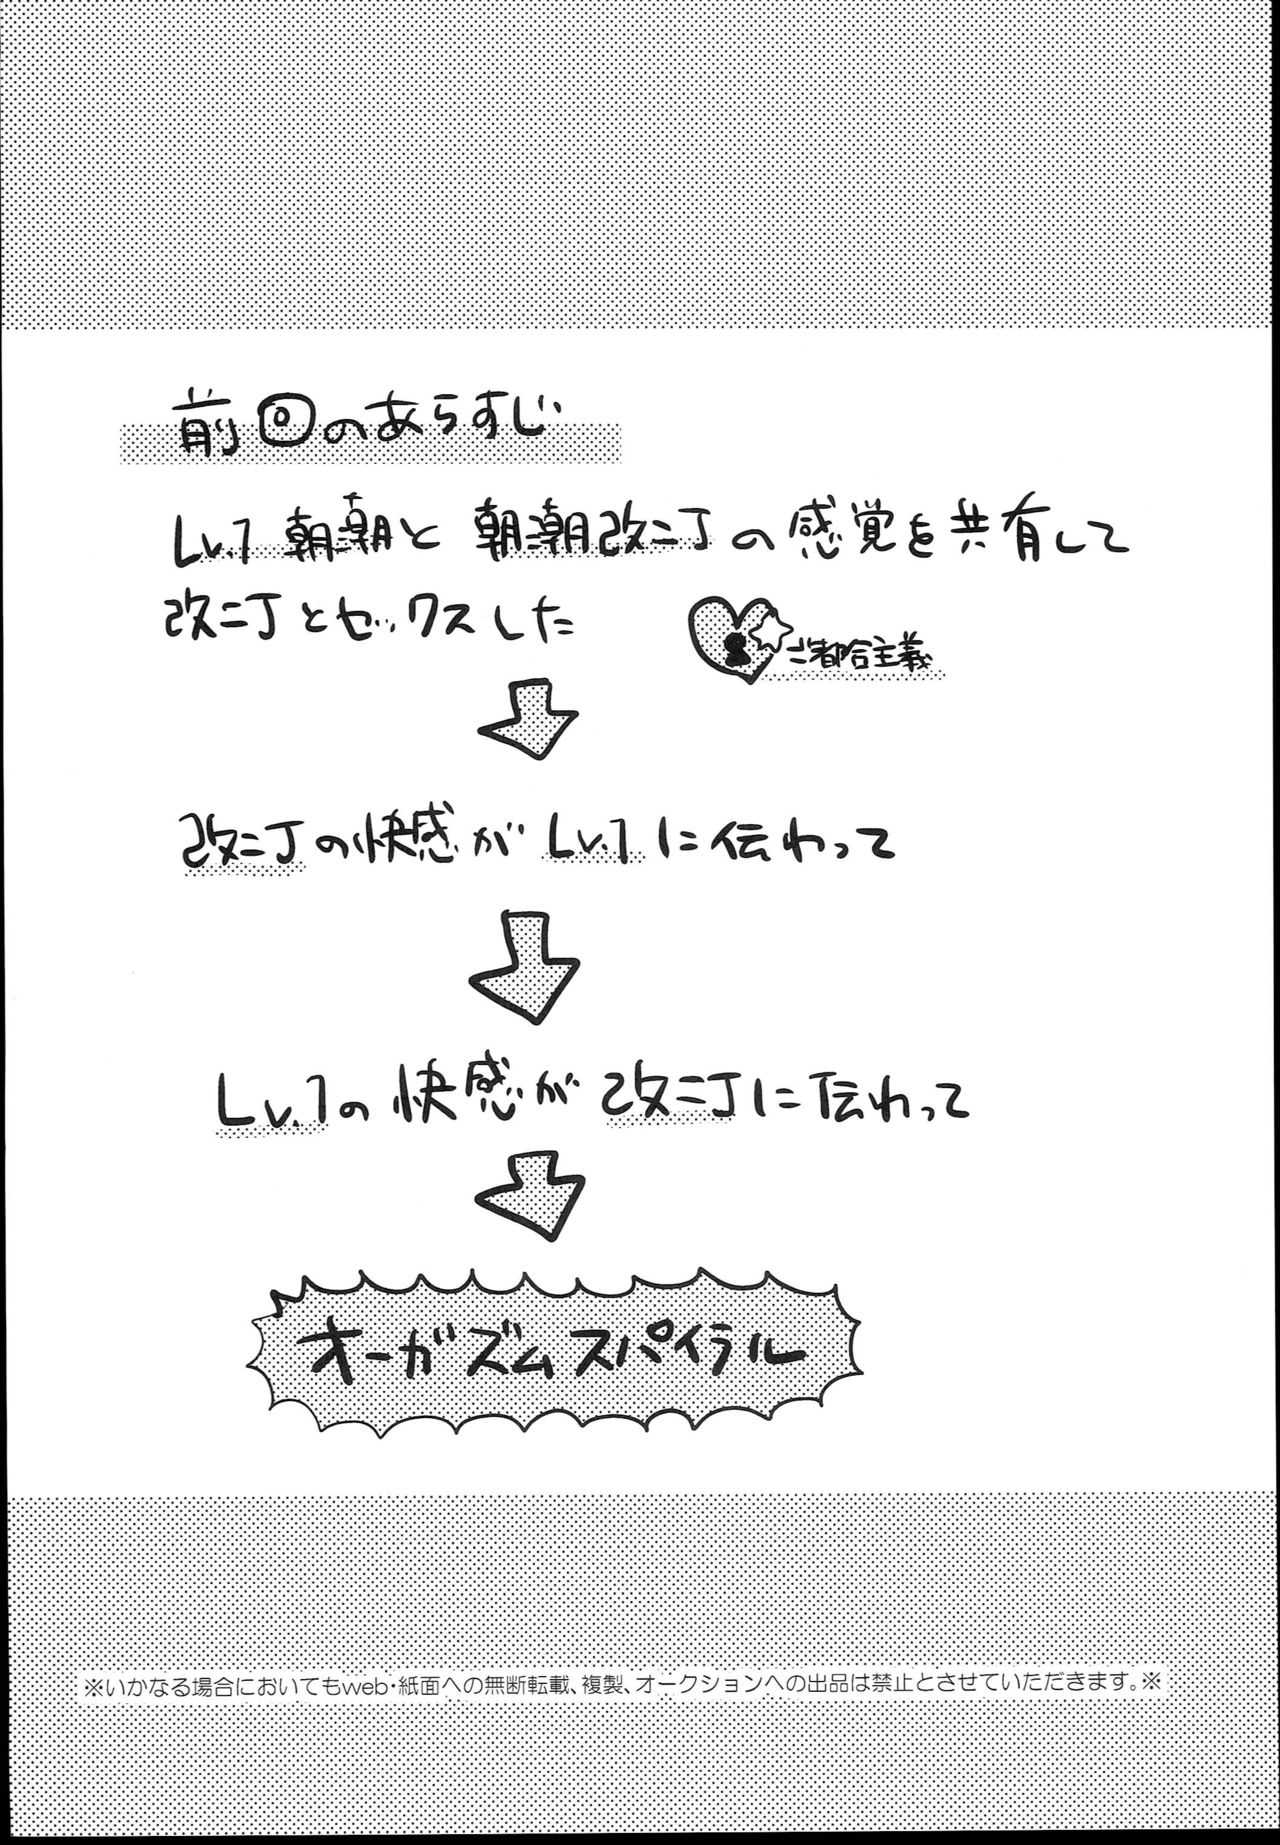 前回のあらすじ
Lv.1 朝潮と朝潮改二丁の感覚を共有して
改二丁とセックスした
ご都合主義
改二丁の快感がLv.1に伝わって
Lv.1の快感が改二丁に伝わって
オーガズムスパイラル
※いかなる場合においてもweb・紙面への無断転載、複製、オークションへの出品は禁止とさせていただきます。※